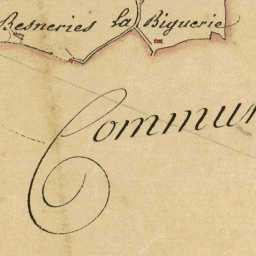 Besneries la Biguerie
Commun